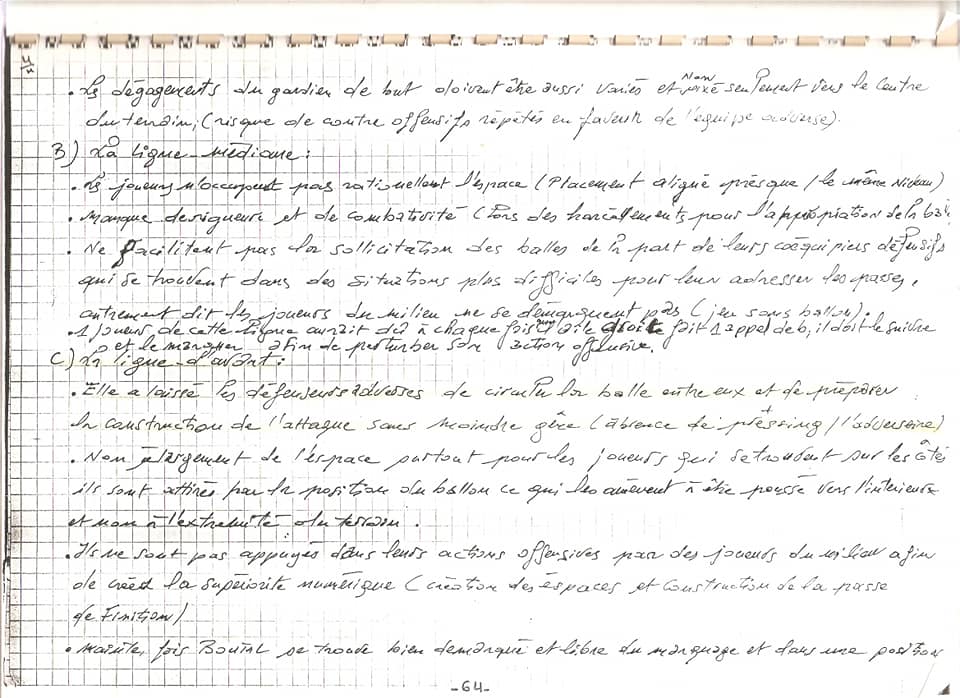 4/7
• Les dégagements du gardien de but doivent être aussi variés et Non axé seulement vers le centre
du terrain, (risque de contre offensifs répétés en faveur de l'équipe adverse).
B) La ligne médiane :
• Les joueurs n'occupent pas rationellemt l'espace (Placement aligné presque / le même Niveau)
• Manque de rigueur et de combativité (Lors des harcèlements pour l'appropriation de la bal
• Ne facilitent pas la sollicitation des balles de la part de leurs coéquipiers défensifs
qui se trouvent dans des situations plus difficiles pour leur adresser les passes,
autrement dit les joueurs du milieu ne se démarquent pas (jeu sans ballon).
• 1 joueur de cette ligne aurait dû à chaque fois aile droite fait 1 appel de b, il doit le suivre
et le marquer afin de perturber son action offensive.
C) La ligne d'avant :
• Elle a laissé les défenseurs adverses de circuler la balle entre eux et de préparer
la construction de l'attaque sans moindre gêne (absence de pressing / l'adversaire)
• Non élargement de l'espace surtout pour les joueurs qui se trouvent sur les côtés
ils sont attirés par la position du ballon ce qui les amèvent à être poussé vers l'intérieur
et non à l'extremité du terrain.
• Ils ne sont pas appuyés dans leurs actions offensives par des joueurs du milieu afin
de créer la supériorité numérique (création des espaces et construction de la passe
de Finition)
• Mainte fois se trouve bien demarqué et libre du marquage et dans une position
-64-